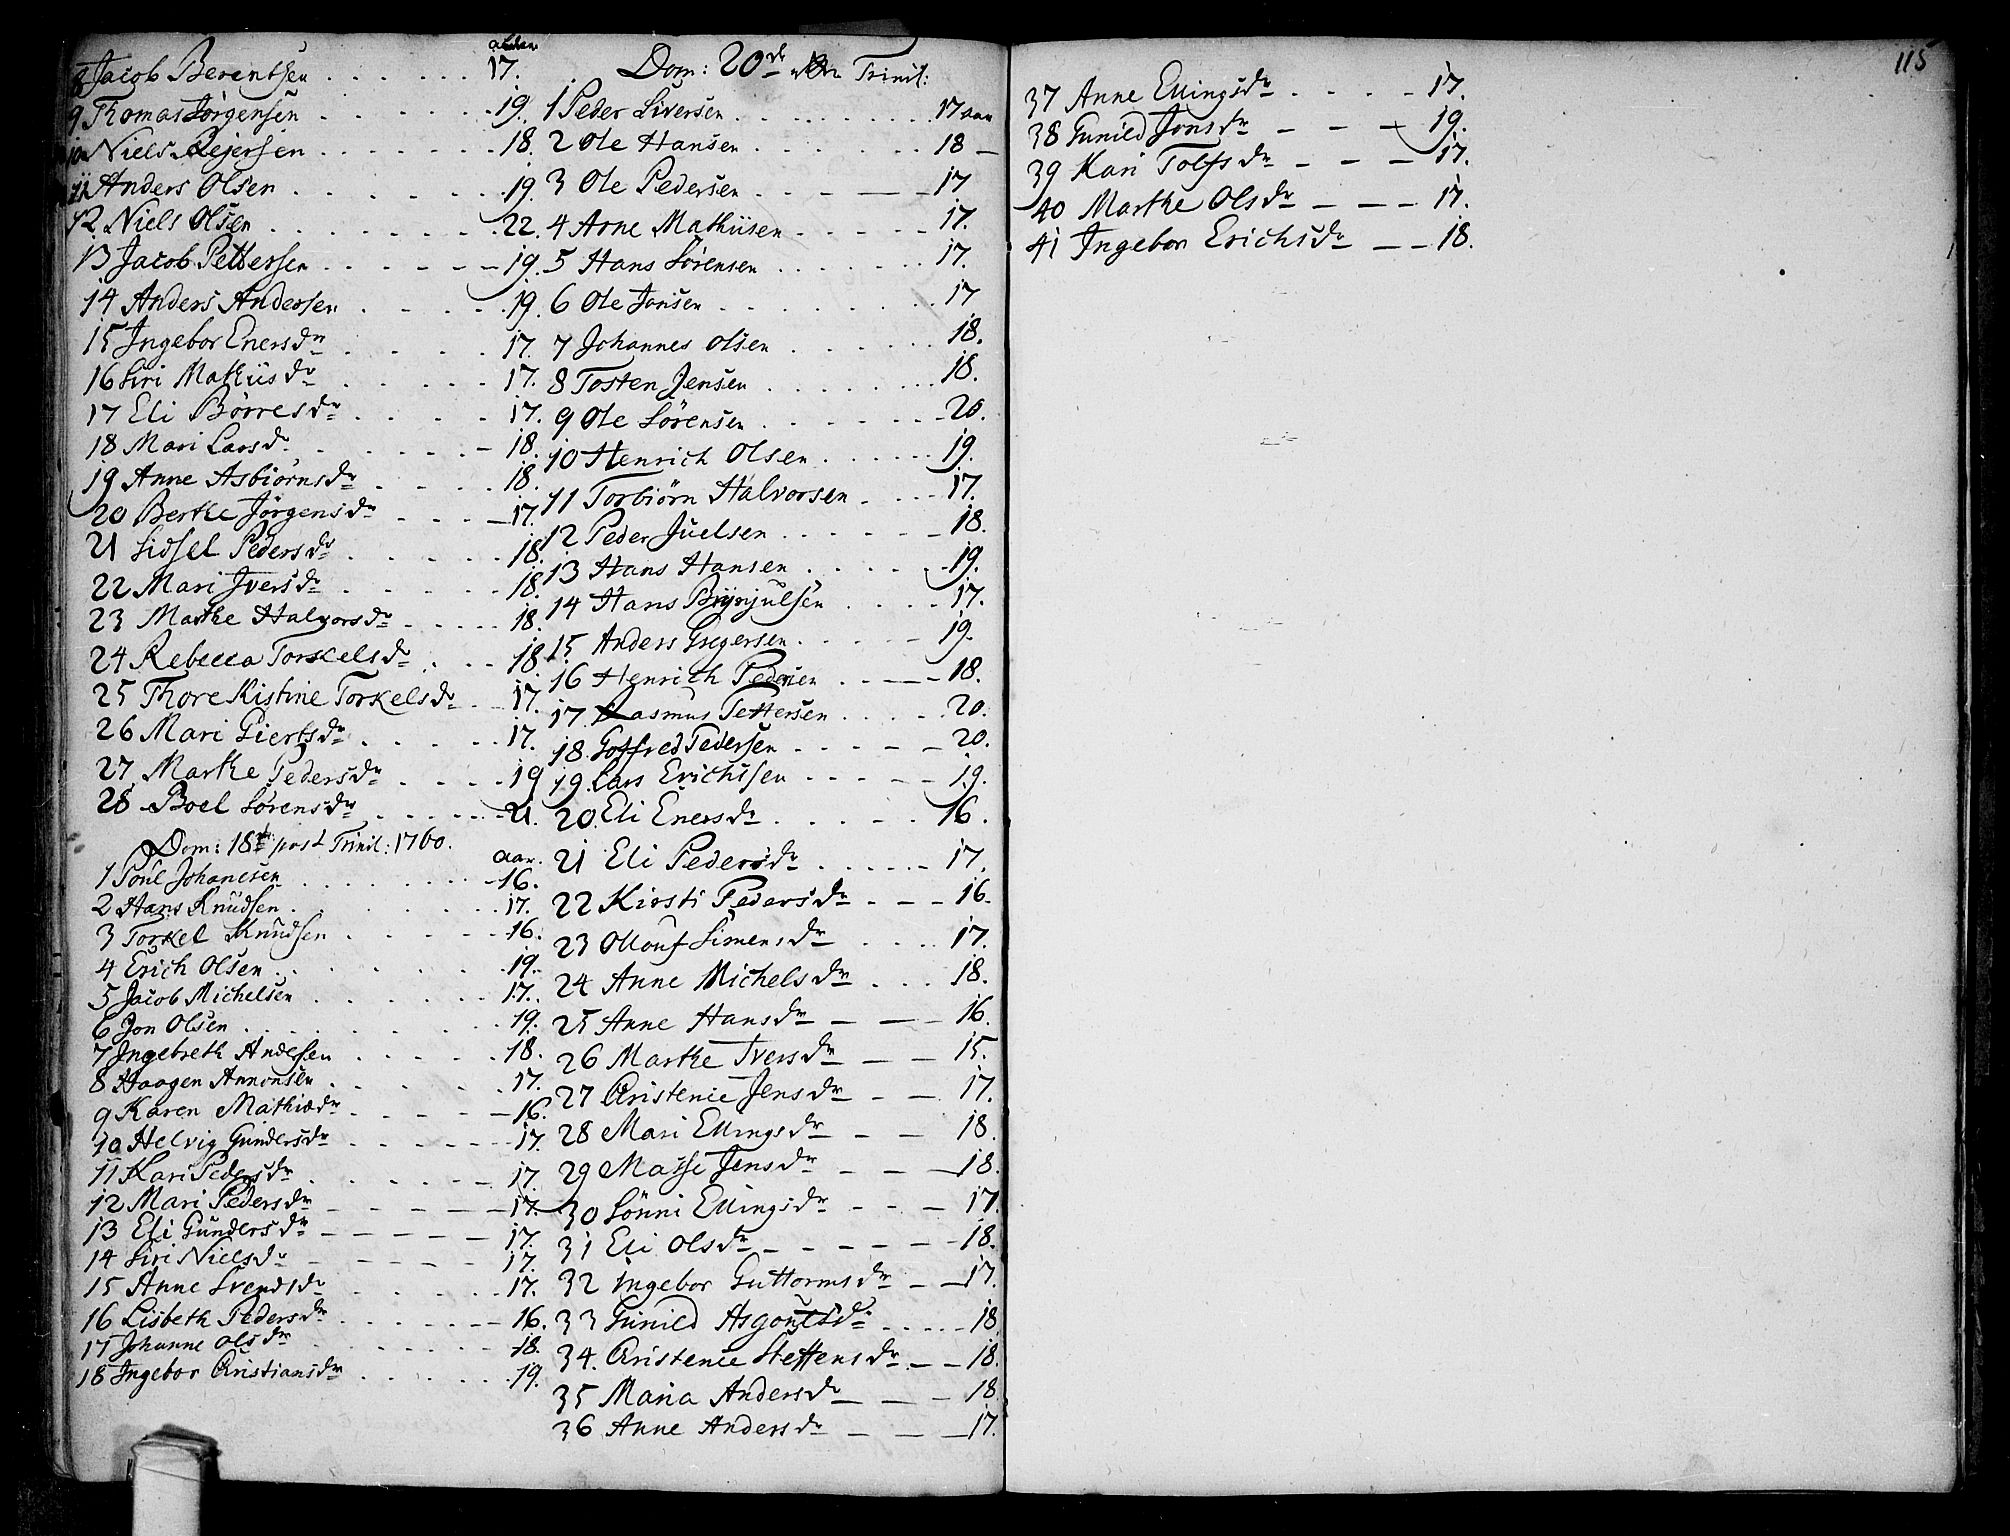 alder
8 Jacob Berentsen . . . . . . 17.
9 Thomas Jörgensen . . . . . . 19.
10 Niels Rejersen . . . . . . 18.
11 Anders Olsen . . . . . . 19
12 Niels Olsen . . . . . . 22.
13 Jacob Pettersen . . . . . . 19.
14 Anders Andersen . . . . . 19
15 Ingebor Enersdr . . . . 17.
16 Siri Mathiisdr . . . . . 17.
17 Eli Börresdr . . . . 17.
18 Mari Larsdr . . . . . 18.
19 Anne Asbiörnsdr . . . . 18.
20 Berthe Jörgensdr . . . . 17.
21 Sidsel Pedersdr . . . . . 18.
22 Mari Iversdr . . . . . 18.
23 Marthe Halvorsdr . . . . . 18.
24 Rebecca Torkelsdr . . . . 18.
25 Thore Kistine Torkelsdr . . 17.
26 Mari Giertsdr . . . . . 17.
27 Marthe Pedersdr . . . . 19
28 Boel Sörensdr . . . . . 21.
Dom: 18de post Trinit: 1760.
aar.
1 Poul Johanesen . . . . . . . 16.
2 Hans Knudsen . . . . . . 17.
3 Torkel Knudsen . . . . . 16.
4 Erich Olsen . . . . . . 19.
5 Jacob Michelsen . . . . . . 17.
6 Jon Olsen . . . . . . . 19.
7 Ingebreth Andersen . . . . . 18.
8 Haagen Amonsen . . . . . 17.
9 Karen Mathiædr . . . . . 16.
10 Helvig Gundersdr . . . . . 17.
11 Kari Pedersdr . . . . . . 17.
12 Mari Pedersdr - - - - - 17.
13 Eli Gundersdr - - - - - 17.
14 Siri Nielsdr - - - - - 17.
15 Anne Svendsdr . . . . . 17.
16 Lisbeth Pedersdr . . . . . . 16.
17 Johanne Olsdr . . . . . . 18.
18 Ingebor Christiansdr . . . . . 19.
Dom: 20de Trinit:
1 Peder Siversen . . . . . . . 17 aar
2 Ole Hansen . . . . . . 18 —
3 Ole Pedersen . . . — — 17
4 Arne Mathiisen . . . . . 17.
5 Hans Sörensen . . . . . . 17.
6 Ole Jonsen . . . . . . 17
7 Johannes Olsen . . . . . 18.
8 Tosten Jensen . . . . . . 18.
9 Ole Sörensen . . . . . . 20.
10 Henrich Olsen . . . . . 19.
11 Torbiörn Halvorsen . . . . 17.
12 Peder Juelsen . . . . . . 18.
13 Hans Hansen . . . . . . 19.
14 Hans Brynjulsen . . . . 17.
15 Anders Gregersen . . . . . 19.
16 Henrich Pedersen . . — — 18.
17 Rasmus Pettersen . . . . 20.
18. Gotfred Pedersen . . . . . 20.
19. Lars Erichssen . . . . . 19.
20. Eli Enersdr . . . . . 16.
21 Eli Pedersdr . . . . . 17.
22 Kirsti Pedersdr . - - - 16.
23 Ollouf Simensdr . . . . 17.
24 Anne Michelsdr . . . . 18.
25 Anne Hansdr — — — 16.
26 Marthe Iversdr — — 15.
27 Christense Jensdr — — 17.
28 Mari Ellingsdr — — 18.
29 Masse Jensdr — — — 18.
30 Sönni Ellingsdr - - - 17.
31 Eli Olsdr — — — — 18.
32 Ingebor Guttormsdr — — 17.
33 Gunild Asgoutsdr . . . . 18
34. Christense Steffensdr . — — 18.
35 Maria Andersdr — — — 18
36 Anne Andersdr — — — 17.
115
37 Anne Ellingsdr . . . . 17.
38 Gunild Jonsdr — — — 19.
39 Kari Tolfsdr — — — 17.
40 Marthe Olsdr — — — 17.
41 Ingebor Erichsdr — — 18.